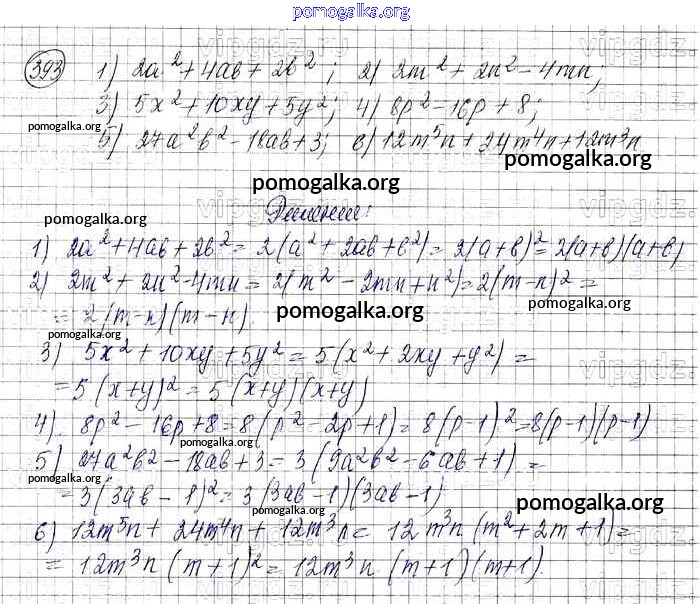 pomogalka.org
393 1) 2a² + 4ab + 2b²; 2) 2m² + 2n² - 4mn;
3) 5x² + 10xy + 5y²; 4) 8p² - 16p + 8;
pomogalka.org
5) 27a²b² - 18ab + 3; 6) 12m⁵n + 24m⁴n + 12m³n
pomogalka.org
pomogalka.org
pomogalka.org
1) 2a² + 4ab + 2b² = 2(a² + 2ab + b²) = 2(a+b)² = 2(a+b)(a+b)
2) 2m² + 2n² - 4mn = 2(m² - 2mn + n²) = 2(m-n)² =
= 2(m-n)(m-n).
pomogalka.org
pomogalka.org
pomogalka.org
3) 5x² + 10xy + 5y² = 5(x² + 2xy + y²) =
= 5(x+y)² = 5(x+y)(x+y)
4). 8p² - 16p + 8 = 8(p² - 2p + 1) = 8(p-1)² = 8(p-1)(p-1)
pomogalka.org
5) 27a²b² - 18ab + 3 = 3(9a²b² - 6ab + 1) =
pomogalka.org
= 3(3ab - 1)² = 3(3ab - 1)(3ab - 1)
pomogalka.org
6) 12m⁵n + 24m⁴n + 12m³n = 12m³n(m² + 2m + 1) =
= 12m³n(m+1)² = 12m³n(m+1)(m+1).
pomogalka.org